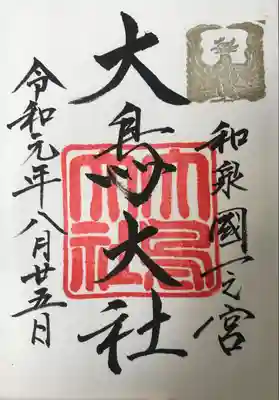 和泉國一之宮
大鳥大社
大鳥大社
令和元年八月廿五日